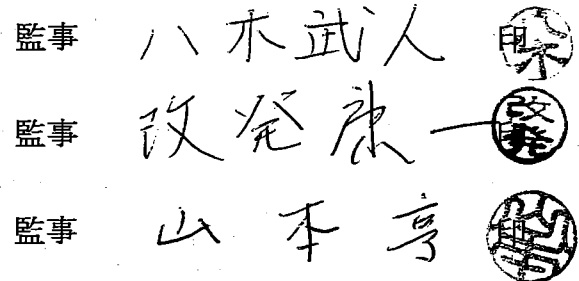 監事 八木武人 印
監事 改発康一 印
監事 山本亨 印